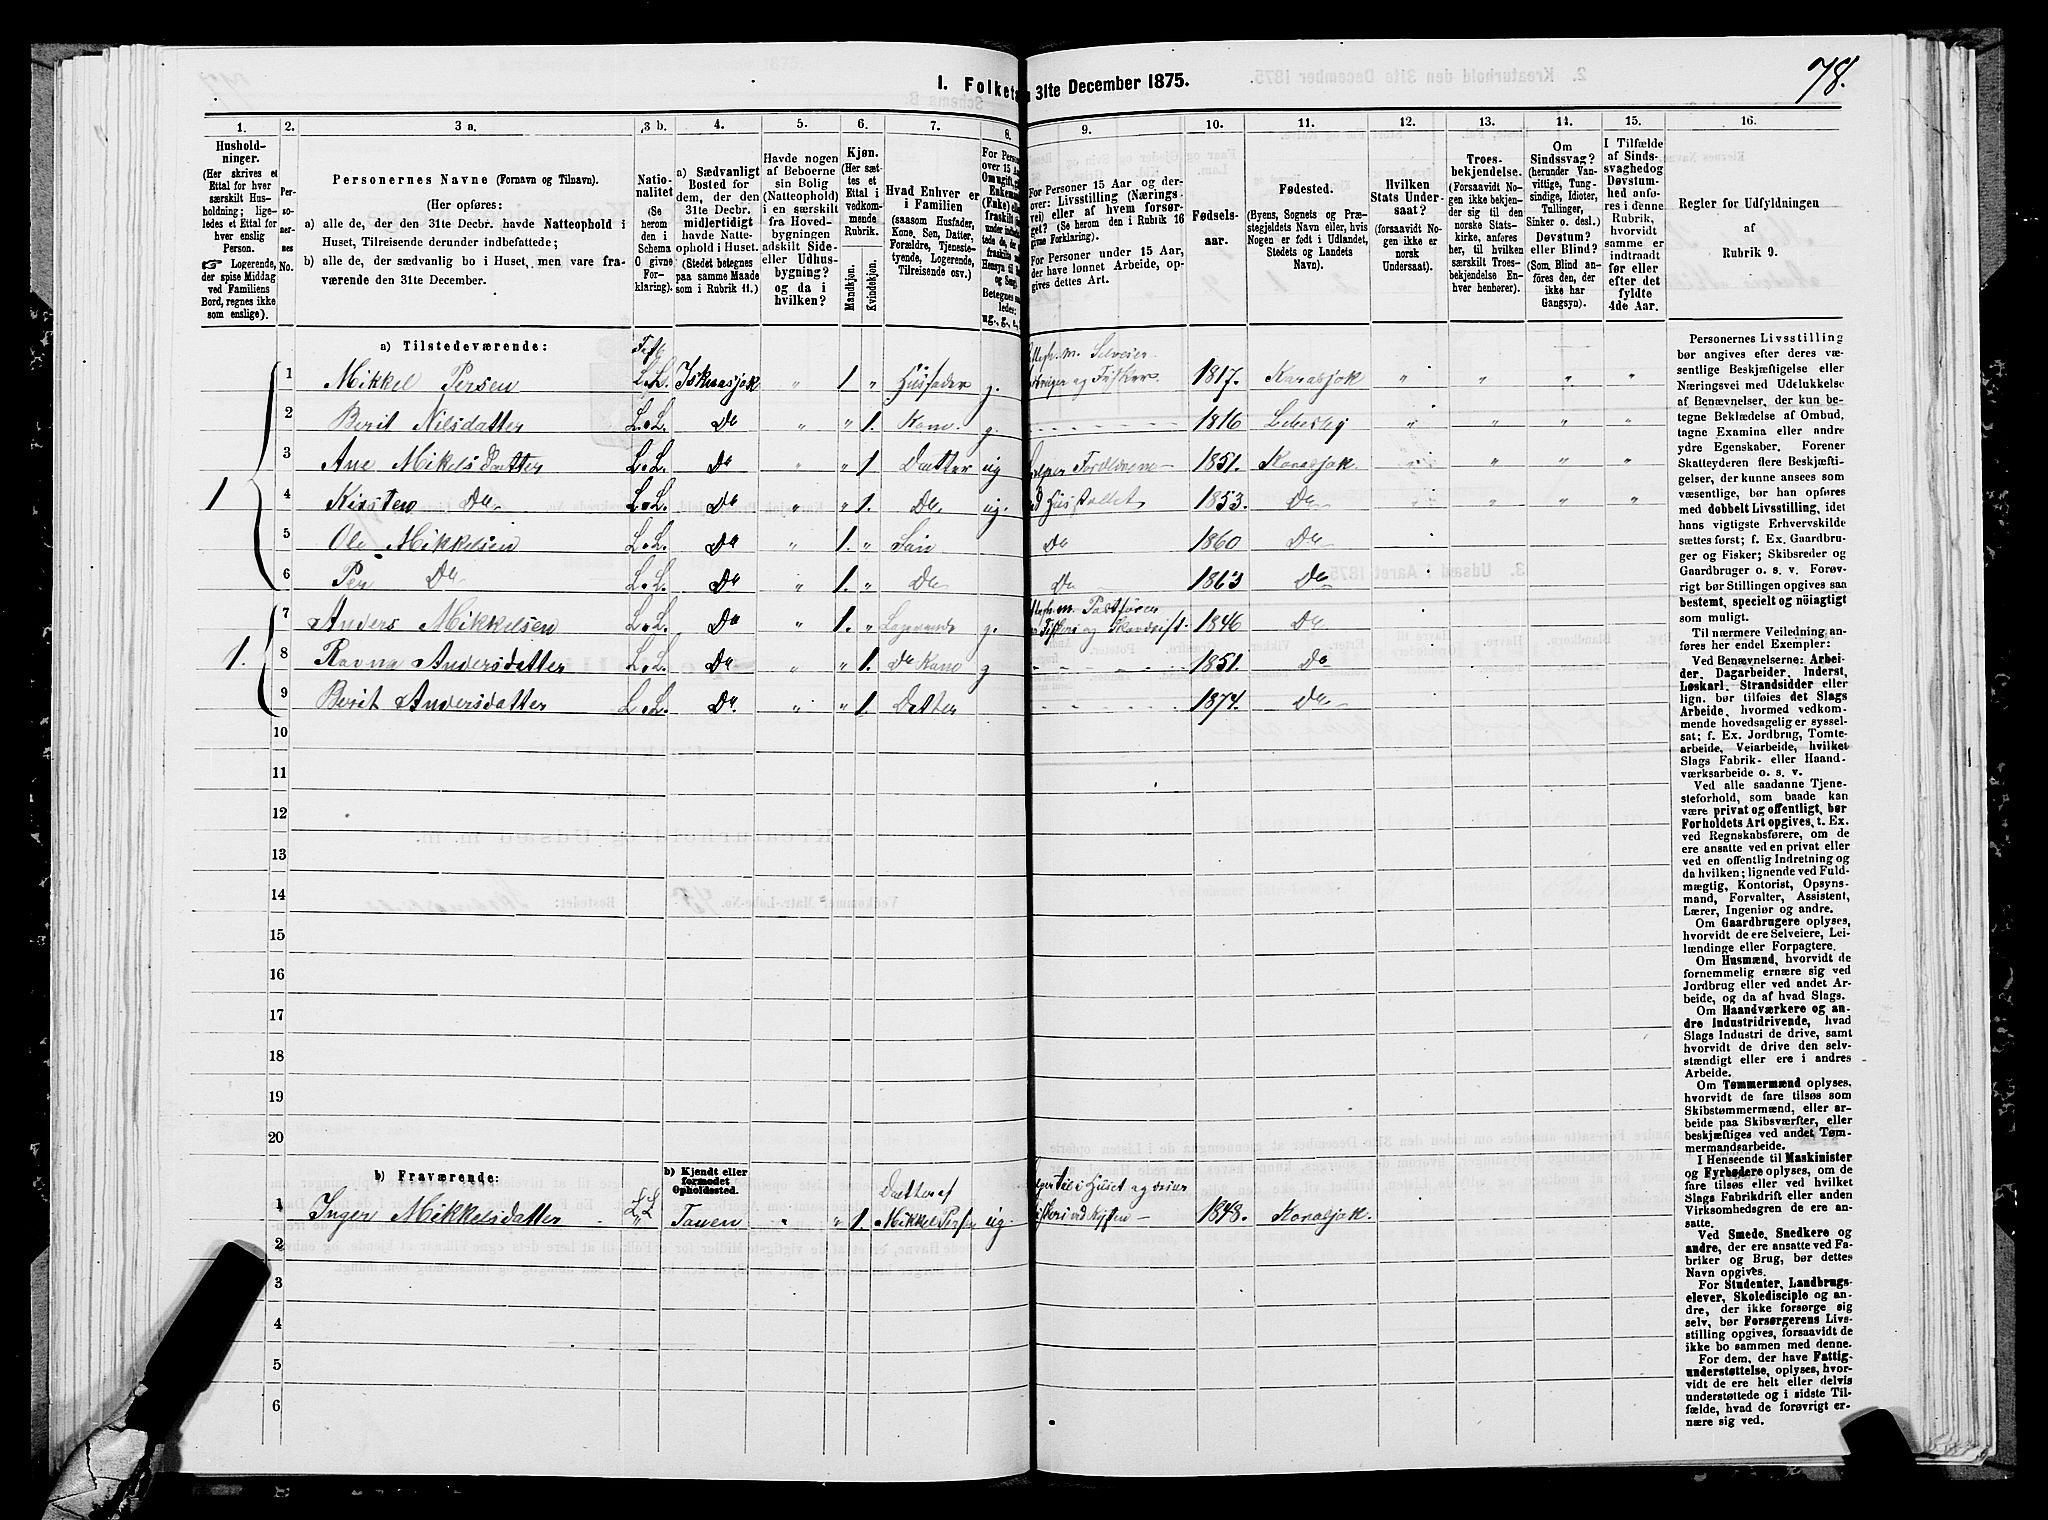 I. Folketa
31te December 1875.
78.
1.
Hushold-
ninger.
(Her skrives et
Ettal for hver
særskilt Hus-
holdning; lige-
ledes et Ettal for
hver enslig
Person.
Logerende,
der spise Middag
ved Familiens
Bord, regnes ikke
som enslige).
2.
Per-
so-
ner-
nes
No.
3 a.
Personernes Navne (Fornavn og Tilnavn).
(Her opføres:
a) alle de, der den 31te Decbr. havde Natteophold i
Huset, Tilreisende derunder indbefattede;
b) alle de, der sædvanlig bo i Huset, men vare fra-
værende den 31te December.
3 b.
Natio-
nalitet
(Se
herom
den i
Schema
O givne
For-
klaring).
4.
a) Sædvanligt
Bosted for
dem, der den
31te Decbr.
midlertidigt
havde Natte-
ophold i Huset.
(Stedet betegnes
paa samme Maade
som i Rubrik 11.)
5.
Havde nogen
af Beboerne
sin Bolig
(Natteophold)
i en særskilt
fra Hoved-
bygningen
adskilt Side-
eller Udhus-
bygning?
og da i
hvilken?
6.
Kjøn.
(Her sæt-
tes et
Ettal i
vedkom-
mende
Rubrik.
Mandkjøn.
Kvindekjøn.
7.
Hvad Enhver er
i Familien
(saasom Husfader,
Kone, Søn, Datter,
Forældre, Tjeneste-
tyende, Logerende,
Tilreisende osv.)
8.
For Person
over 15 Aar
Omugift, g
Enkem
(Fake) e
Betegnes saa
ledes:
ug., g., e.,
9.
For Personer 15 Aar og der-
over: Livsstilling (Nærings-
vei) eller af hvem forsør-
get? (Se herom den i Rubrik 16
givne Forklaring).
For Personer under 15 Aar,
der have lønnet Arbeide, op-
gives dettes Art.
10.
Fødsels-
aar.
11.
Fødested.
(Byens, Sognets og Præ-
stegjeldets Navn eller, hvis
Nogen er født i Udlandet,
Stedets og Landets
Navn).
12.
Hvilken
Stats Under-
saat?
(forsaavidt No-
gen ikke er
norsk
Undersaat).
13.
Troes-
bekjendelse.
(Forsaavidt No-
gen ikke bekjen-
der sig til den
norske Stats-
kirke, anføres
her, til hvilken
særskilt Troes-
bekjendelse En-
hver henhører).
14.
Om
Sindssvag?
(herunder Van-
vittige, Tung-
sindige, Idioter,
Tullinger,
Sinker o. desl.)
Døvstum?
eller Blind?
(Som Blind an-
føres den, der
ikke har
Gangsyn).
15.
I Tilfælde
af Sinds-
svaghed og
Døvstum-
hed anføres
i denne
Rubrik,
hvorvidt
samme er
indtraadt
før eller
efter det
fyldte
4de Aar.
16.
Regler for Udfyldningen
af
Rubrik 9.
a) Tilstedeværende:
1 Mikkel Persen L.L. 1 " Husfader g. og Fisker. 1817. Karasjok " " " "
2 Berit Nilsdatter L.L. Do " " 1. Kone. g. 1816 Lebesby " " " "
3 Ane Mikelsdatter L.L. Do " " 1 Datter ug 1851. Karasjok. " " " "
1 4 Kirsten Do L.L. Do " " 1. Do. ug. 1853. Do " " " "
5 Ole Mikkelsen L.L. Do " 1. " Søn Do 1860 Do
6 Per Do L.L. Do " 1. " Do Do 1863 Do
7 Anders Mikkelsen L.L. Do " 1. " Logerende g. 1846 Do
1. 8 Ravna Andersdatter L.L. Do " " 1. Do Kone g 1851. Do
9 Berit Andersdatter L.L. Do. " " 1. Datter 1874. Do
10
11
12
13
14
15
16
17
18
19
20
b) Fraværende:
b) Kjendt eller
formodet
Opholdssted.
Datter af
1 Inger Mikkelsdatter L.L. Tanen " " 1. Mikkel Persen ug. 1848. Karasjok.
2
3
4
5
6
Personernes Livsstilling
bør angives efter deres væ-
sentlige Beskjæftigelse eller
Næringsvei med Udelukkelse
af Benævnelser, der kun be-
tegne Beklædelse af Ombud,
tagne Examina eller andre
ydre Egenskaber. Forener
Skatteyderen flere Beskjæfti-
gelser, der kunne ansees som
væsentlige, bør han opføres
med dobbelt Livsstilling, idet
hans vigtigste Erhvervskilde
sættes først; f. Ex. Gaardbru-
ger og Fisker; Skibsreder og
Gaardbruger o. s. v. Forøv-
rigt bør Stillingen opgives saa
bestemt, specielt og nöiagtigt
som muligt.
Til nærmere Veiledning an-
føres her endel Exempler:
Ved Benævnelserne: Arbei-
der, Dagarbeider, Inderst,
Løskarl, Strandsidder eller
lign. bør tilføies det Slags
Arbeide, hvormed vedkom-
mende hovedsagelig er syssel-
sat; f. Ex. Jordbrug, Tomte-
arbeide, Veiarbeide, hvilket
Slags Fabrik- eller Haand-
værksarbeide o. s. v.
Ved alle saadanne Tjene-
steforhold, som baade kan
være privat og offentligt, bør
Forholdets Art opgives, t. Ex.
ved Regnskabsførere, om de
ere ansatte ved en privat eller
ved en offentlig Indretning og
da hvilken; lignende ved Fuld-
mægtig, Kontorist, Opsyns-
mand, Forvalter, Assistent,
Lærer, Ingeniør og andre.
Om Gaardbrugere oplyses,
hvorvidt de ere Selveiere, Lei-
lændinge eller Forpagtere.
Om Husmænd, hvorvidt de
fornemmelig ernære sig ved
Jordbrug eller ved andet Ar-
beide, og da af hvad Slags.
Om Haandværkere og an-
dre Industridrivende, hvad
Slags Industri de drive, samt
hvorvidt de drive den selv-
stændigt eller ere i andres
Arbeide.
Om Tømmermænd oplyses,
hvorvidt de fare tilsøs som
Skibstømmermænd, eller ar-
beide paa Skibsværfter, eller
beskjæftiges ved andet Tøm-
mermandsarbeide.
I Henseende til Maskinister
og Fyrbødere oplyses, om de
fare tilsøs eller ved hvilket
Slags Fabrikdrift eller anden
Virksomhedsgren de ere an-
satte.
Ved Smede, Snedkere og
andre, der ere ansatte ved Fa-
briker og Brug, bør dettes
Navn opgives.
For Studenter, Landbrugs-
elever, Skoledisciple og an-
dre, der ikke forsørge sig
selv, bør Forsørgerens Livs-
stilling opgives, forsaavidt de
ikke bo sammen med denne.
For dem, der have Fattig-
understøttelse, oplyses, hvor-
vidt de ere helt eller delvis
understøttede og i sidste Til-
fælde, hvad de forøvrigt er-
nære sig ved.